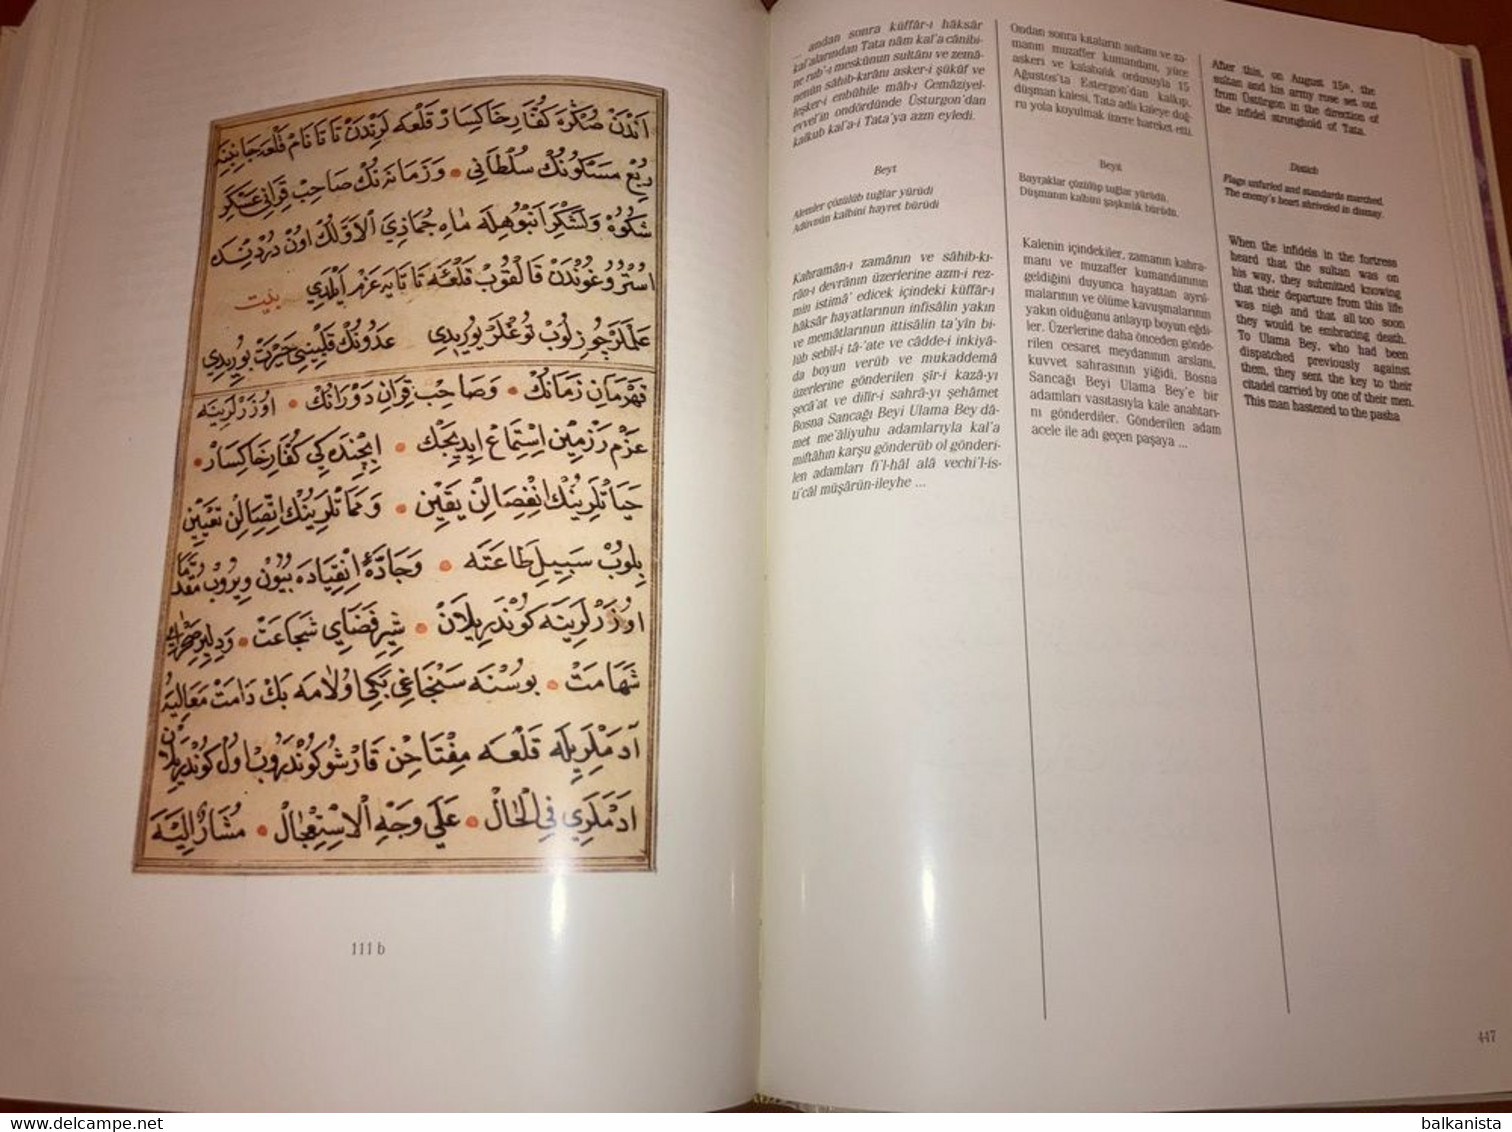 اَنْدَنْ صُكْرَه كُفَّارِ خَاكِسَارْ قَلْعَه لَرِنْدَنْ تَاتَا نَامْ قَلْعَه جَانِبِنَه
رُبْعِ مَسْكُونُكْ سُلْطَانِي وَزَمَانَه نُكْ صَاحِبْ قِرَانِي عَسْكَرِ
شُكُوهْ وَلَشْكَرِ اَنْبُوهِلَه مَاهِ جُمَاذِي الْاَوَّلُكْ اُونْ دُرْدُنْدَه
اُسْتُرُوغُونْدَنْ قَالْقُوبْ قَلْعَه تَاتَايَه عَزْم اَيْلَدِي
بيت
عَلَمْلَرْ چُوزِلُوبْ تُوغْلَرْ يُورِيدِي عَدُونُكْ قَلْبِنِي حَيْرَتْ بُورِيدِي
قَهْرَمَانِ زَمَانُكْ وَصَاحِبْ قِرَانِ دَوْرَانُكْ اُوزَرْلَرِينَه
عَزْمِ رَزْمِين اِسْتِمَاع اِيدِيجَكْ اِيچِنْدَه كِي كُفَّارِ خَاكِسَارْ
حَيَاتْلَرِينُكْ اِنْفِصَالِنْ يَقِين وَمَمَاتْلَرِينُكْ اِتِّصَالِنْ تَعْيِين
بِلُوبْ سَبِيلِ طَاعَتَه وَجَادَّهٔ اِنْقِيَادَه بُيُون وِيرُوبْ مُقَدَّمَا
اُوزَرْلَرِينَه كُونْدَرِيلَانْ شِيرِ قَضَايِ شَجَاعَتْ وَدِلِيرِ صَحْرَايِ
شَهَامَتْ بُوسْنَه سَنْجَاغِي بَكِي اُولَامَه بَكْ دَامَتْ مَعَالِيهُ
آدَمْلَرِيلَه قَلْعَه مِفْتَاحِن قَارْشُو كُونْدَرُوبْ اُولْ كُونْدَرِيلَانْ
اَدَمْلَرِي فِي الْحَالْ عَلَي وَجْهِ الْاِسْتِعْجَالْ مُشَارٌ اِلَيْهَ
111 b
... andan sonra küffâr-ı hâksâr
kal'alarından Tata nâm kal'a cânibi-
ne rub'-ı meskûnun sultânı ve zemâ-
nenün sâhib-kırânı asker-i şükûf ve
leşker-i enbûhile mâh-ı Cemâziyel-
evvel'in ondördünde Üsturgon'dan
kalkub kal'a-i Tata'ya azm eyledi.
Beyt
Alemler çözülüb tuğlar yürüdi
Adüvnün kalbini hayret bürüdi
Kahramân-ı zamânın ve sâhib-kı-
rân-ı devrânın üzerlerine azm-i rez-
min istimâ' edicek içindeki küffâr-ı
hâksâr hayatlarının infisâlin yakın
ve memâtlarının ittisâlin ta'yîn bi-
lüb sebîl-i tâ'ate ve câdde-i inkıyâ-
da boyun verüb ve mukaddemâ
üzerlerine gönderilen şîr-i kazâ-yı
şecâ'at ve dilîr-i sahrâ-yı şehâmet
Bosna Sancağı Beyi Ulama Bey dâ-
met me'âliyuhu adamlarıyla kal'a
miftâhın karşu gönderüb ol gönderi-
len adamları fi'l-hâl alâ vechi'l-is-
ti'câl müşârün-ileyhe ...
Ondan sonra kıtaların sultanı ve za-
manın muzaffer kumandanı, yüce
askeri ve kalabalık ordusuyla 15
Ağustos'ta Estergon'dan kalkıp,
düşman kalesi, Tata adlı kaleye doğ-
ru yola koyulmak üzere hareket etti.
Beyit
Bayraklar çözülüp tuğlar yürüdü.
Düşmanın kalbini şaşkınlık bürüdü.
Kalenin içindekiler, zamanın kahra-
manı ve muzaffer kumandanının
geldiğini duyunca hayattan ayrıl-
malarının ve ölüme kavuşmalarının
yakın olduğunu anlayıp boyun eğdi-
ler. Üzerlerine daha önceden gönde-
rilen cesaret meydanının arslanı,
kuvvet sahrasının yiğidi, Bosna
Sancağı Beyi Ulama Bey'e bir
adamları vasıtasıyla kale anahtarı-
nı gönderdiler. Gönderilen adam
acele ile adı geçen paşaya ...
After this, on August 15th, the
sultan and his army rose set out
from Üstürgon in the direction of
the infidel stronghold of Tata.
Distich
Flags unfurled and standards marched.
The enemy's heart shriveled in dismay.
When the infidels in the fortress
heard that the sultan was on
his way, they submitted knowing
that their departure from this life
was nigh and that all too soon
they would be embracing death.
To Ulama Bey, who had been
dispatched previously against
them, they sent the key to their
citadel carried by one of their men.
This man hastened to the pasha
447
the-collection.net
balkanista